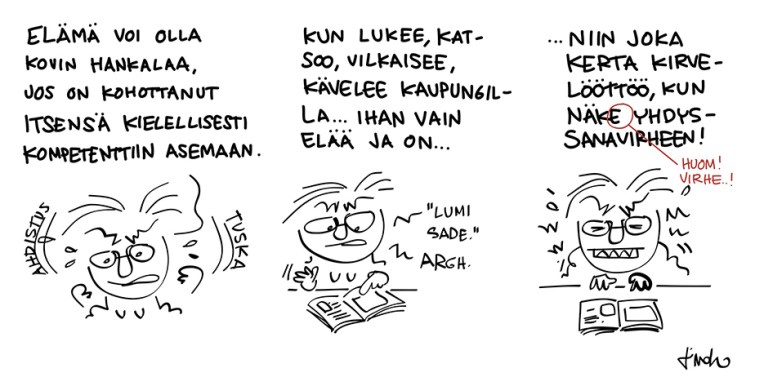 ELÄMÄ VOI OLLA
KOVIN HANKALAA,
JOS ON KOHOTTANUT
ITSENSÄ KIELELLISESTI
KOMPETENTTIIN ASEMAAN.
AHDISTUS
TUSKA
KUN LUKEE, KAT-
SOO, VILKAISEE,
KÄVELEE KAUPUNGIL-
LA... IHAN VAIN
ELÄÄ JA ON...
"LUMI
SADE."
ARGH.
...NIIN JOKA
KERTA KIRVE-
LÖÖTTÖÖ, KUN
NÄKE YHDYS-
SANAVIRHEEN!
HUOM!
VIRHE..!